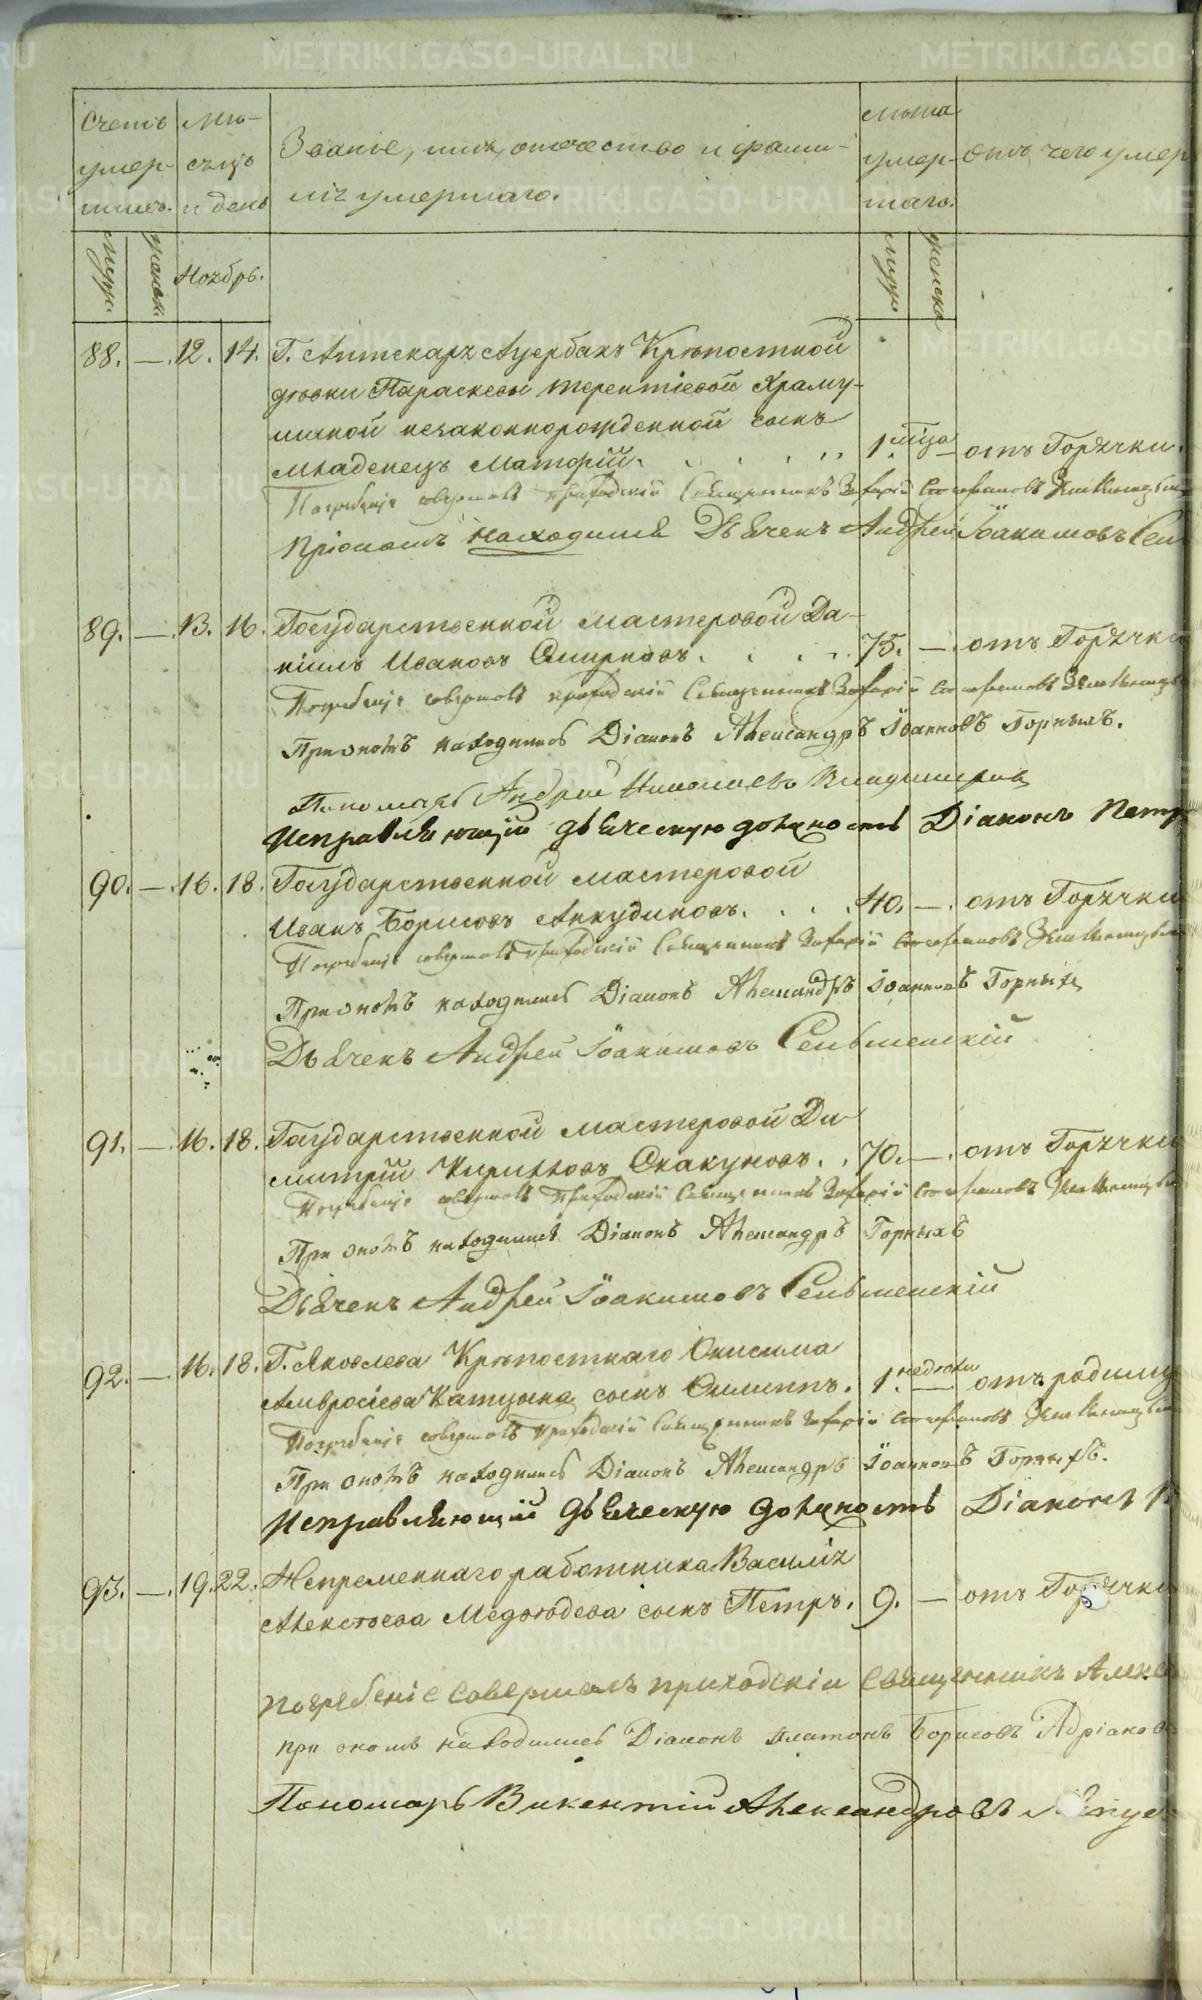 Счетъ умер-шихъ.
Мѣ-сяцъ и день
Званіе, имя, отчество и фами-
лія умершаго.
Лѣта умер-шаго.
Отъ чего умер
мужс. женск.
Ноябрь.
мужс. женска
88. — 12. 14. Г. Аптекаря Ауербахъ Крѣпостной
дѣвки Параскевы Терентіевой Храму-
шиной незаконнорожденной сынъ
младенецъ Матфій. 1. мѣся — отъ Горячки.
Погребеніе совершалъ приходскій Священникъ Захарій Стефановъ
Пріономъ находился Дьячекъ Андрей Іоакимовъ Сель
89. — 13. 16. Государственной мастеровой Да-
ніилъ Ивановъ Смирновъ. 75. — отъ Горячки
Погребеніе совершалъ приходскій Священникъ Захарій Стефановъ
При ономъ находились Діаконъ Александръ Іоанновъ Горныхъ.
Пономарь Андрей Николаевъ Владимировъ
Исправляющій дьяческую должность Діаконъ Петр
90. — 16. 18. Государственной мастеровой
Иванъ Борисовъ Анкудиновъ. 40. — отъ Горячки
Погребеніе совершалъ приходскій Священникъ Захарій Стефановъ
При ономъ находились Діаконъ Александръ Іоанновъ Горныхъ
Дьячекъ Андрей Іоакимовъ Сельменскій
91. — 16. 18. Государственной мастеровой Ди-
митрій Кириловъ Скакуновъ. 70. — отъ Горячки
Погребеніе совершалъ приходскій Священникъ Захарій Стефановъ
При ономъ находился Діаконъ Александръ Горныхъ
Дьячекъ Андрей Іоакимовъ Сельменскій
92. — 16. 18. Г. Яковлева Крѣпостнаго Онисима
Амвросіева Катцына сынъ Филиппъ. 1. недѣли — отъ родиму
Погребеніе совершалъ Приходскій Священникъ Захарій Стефановъ
При ономъ находились Діаконъ Александръ Іоанновъ Горныхъ.
Исправляющій дьяческую должность Діаконъ П
93. — 19. 22. Непременнаго работника Василія
Алексѣева Медвѣдева сынъ Петръ. 9. — отъ Горячки
Погребеніе совершалъ приходскій Священникъ Алекс
при ономъ находились Діаконъ Платонъ Борисовъ Адріанов
Пономарь Викентій Александровъ
METRIKI.GASO-URAL.RU